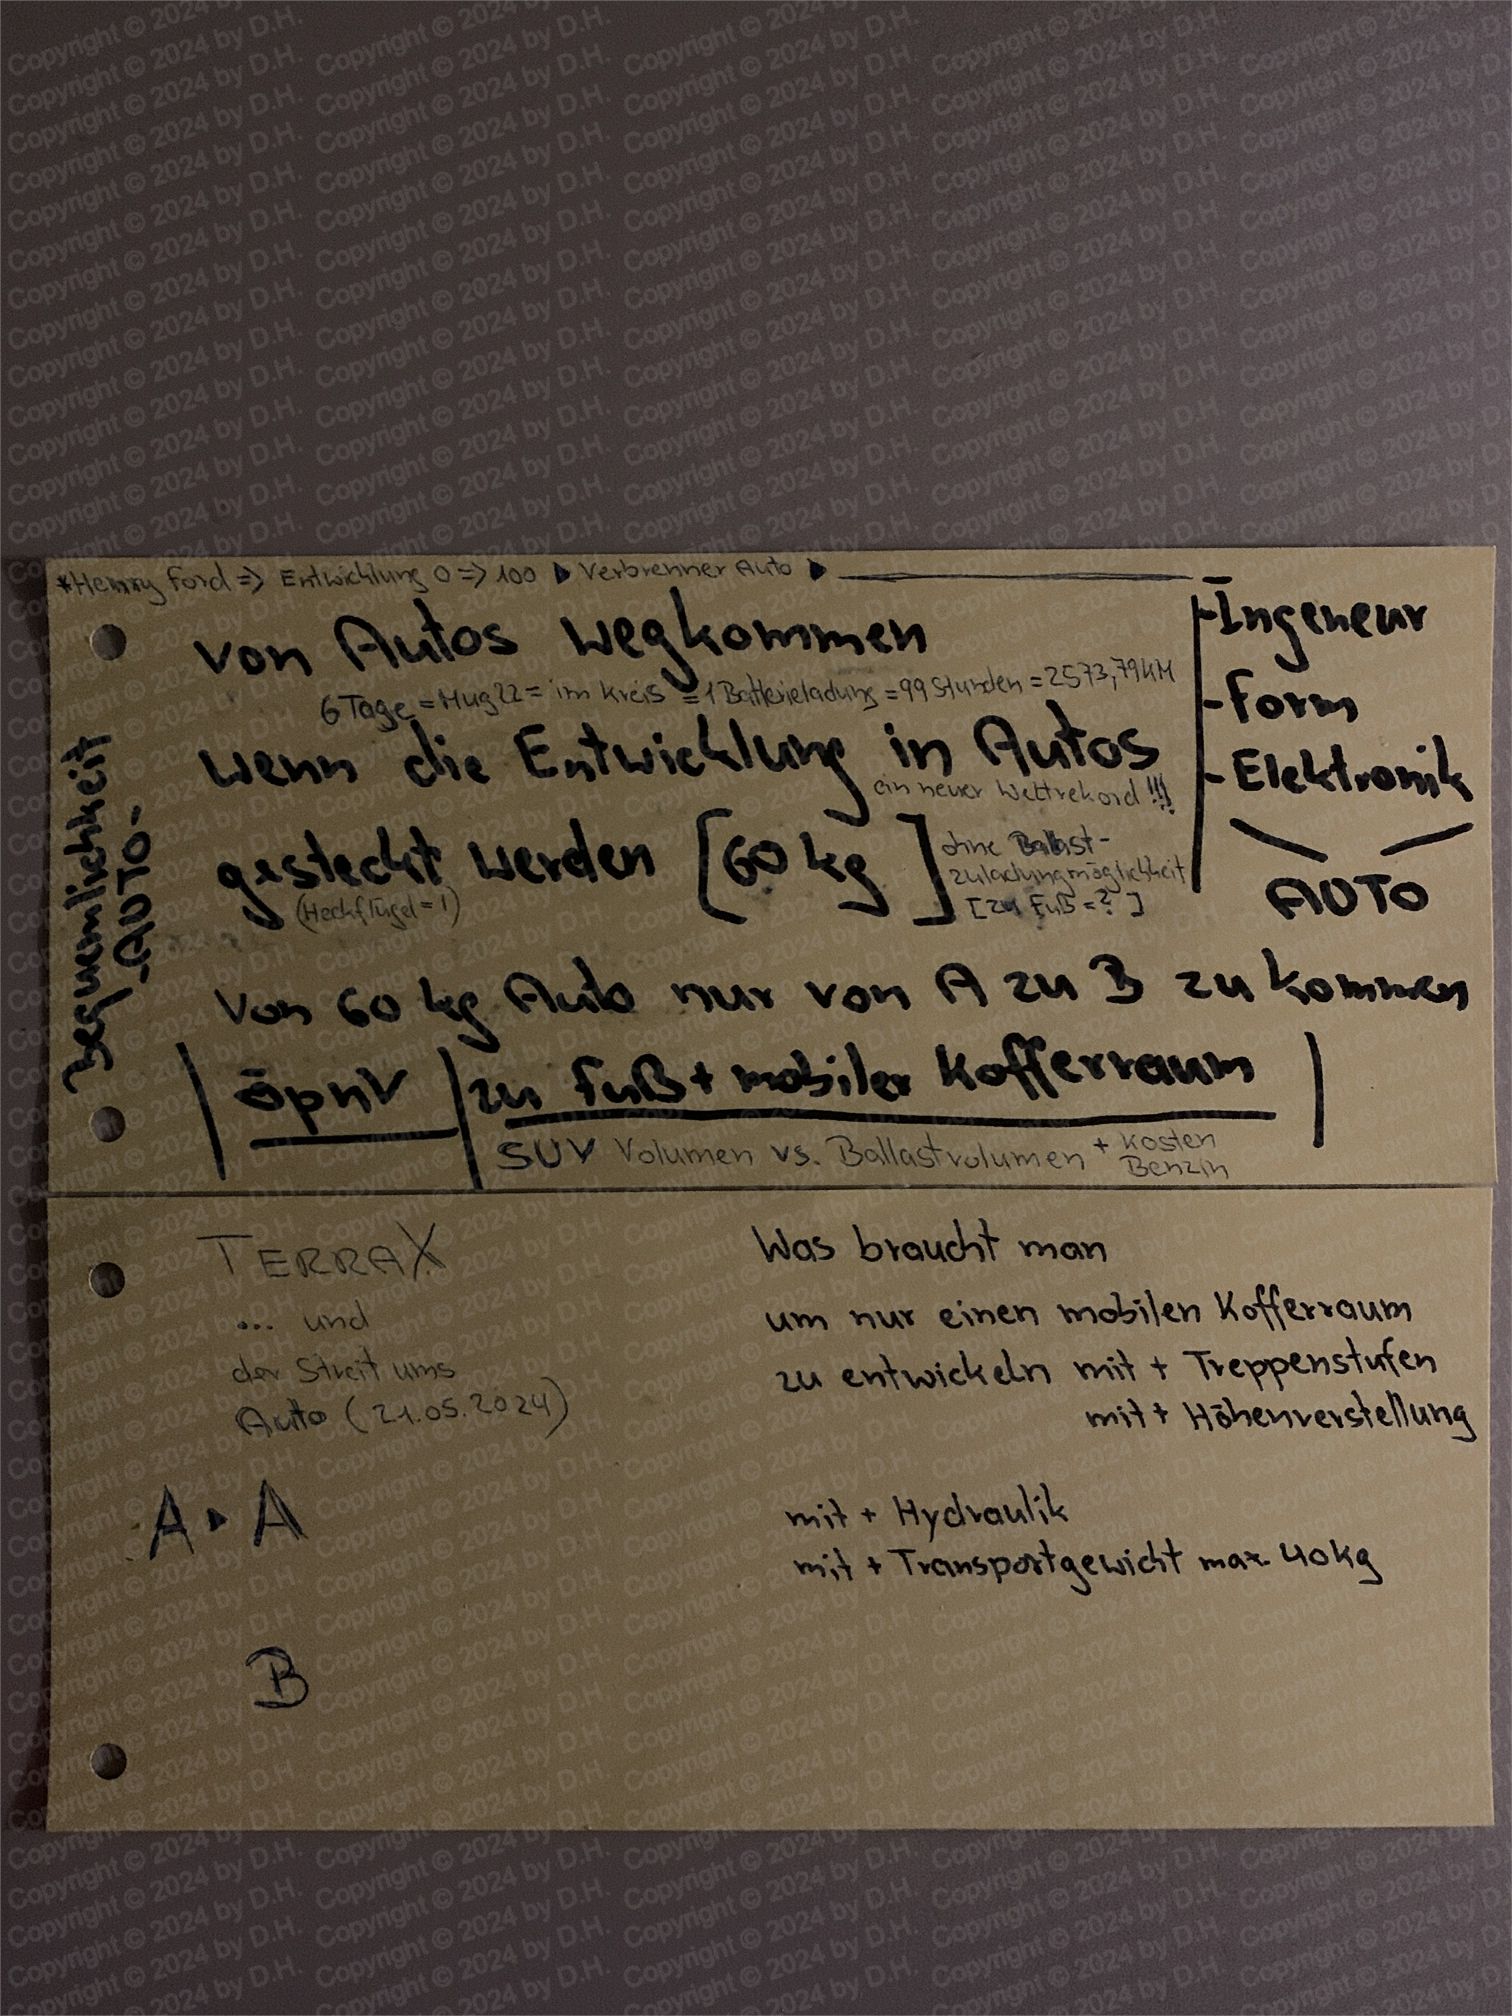 *Henry Ford => Entwicklung 0 => 100 ▶ Verbrenner Auto ▶
von Autos wegkommen
6 Tage = Mug22 = im Kreis = 1 Batterieladung = 99 Stunden = 2573,79KM
wenn die Entwicklung in Autos
ein neuer Weltrekord !!!
gesteckt werden [60 kg]
(Heckflügel = 1)
ohne Ballast-
zuladungmöglichkeit
[zu Fuß = ?]
Von 60 kg Auto nur von A zu B zu kommen
öpnV | zu Fuß + mobiler Kofferraum |
SUV Volumen vs. Ballastvolumen + Kosten
Benzin
- Ingeneur
- Form
- Elektronik
AUTO
Bequemlichkeit
-AUTO-
TERRAX
... und
der Streit ums
Auto (21.05.2024)
A ▶ A
B
Was braucht man
um nur einen mobilen Kofferraum
zu entwickeln mit + Treppenstufen
mit + Höhenverstellung
mit + Hydraulik
mit + Transportgewicht max. 40kg
Copyright © 2024 by D.H.